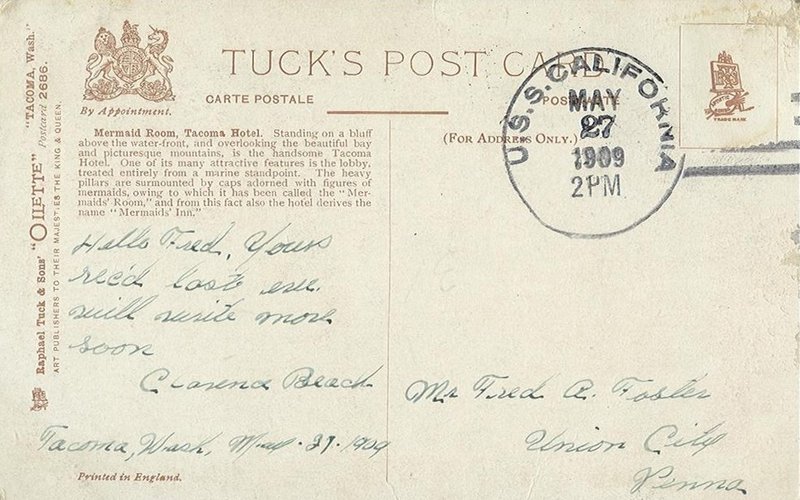 TUCK'S POST CARD
By Appointment.
CARTE POSTALE
(FOR ADDRESS ONLY.)
U.S.S. CALIFORNIA
MAY
27
1909
2PM
TRADE MARK
"TACOMA, Wash."
Postcard 2686.
Raphael Tuck & Sons' "OILETTE"
ART PUBLISHERS TO THEIR MAJESTIES THE KING & QUEEN.
Mermaid Room, Tacoma Hotel. Standing on a bluff
above the water-front, and overlooking the beautiful bay
and picturesque mountains, is the handsome Tacoma
Hotel. One of its many attractive features is the lobby,
treated entirely from a marine standpoint. The heavy
pillars are surmounted by caps adorned with figures of
mermaids, owing to which it has been called the "Mer-
maids' Room," and from this fact also the hotel derives the
name "Mermaids' Inn."
Hello Fred, Yours
rec'd last eve.
will write more
soon
Clarence Beach
Tacoma, Wash, May-27-1909
Mr Fred A. Foster
Union City
Penna
Printed in England.